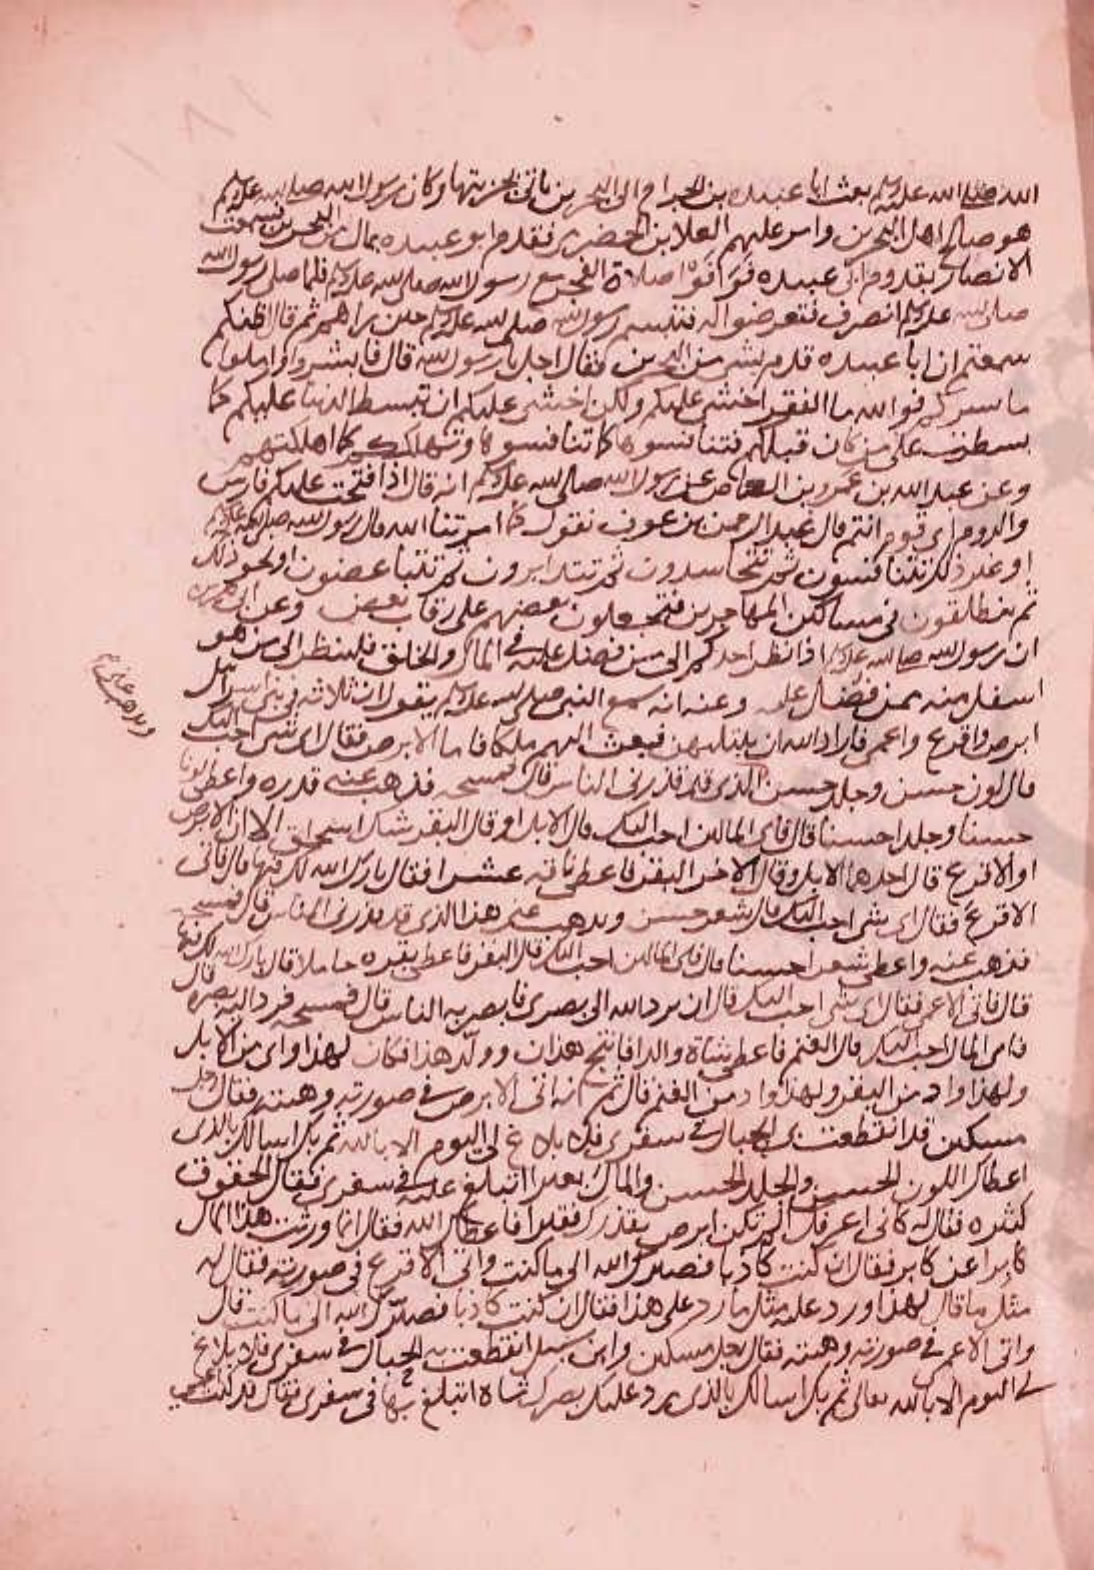 الله صلى الله عليه وسلم بعث ابا عبيده بن الجراح الى البحرين ياتى بجزيتها وكان رسول الله صلى الله عليه وسلم
هو صالح اهل البحرين وامر عليهم العلا بن الحضرمى فقدم ابو عبيده بمال من البحرين فسمعت
الانصار بقدوم ابى عبيده فوافوا صلاة الفجر مع رسول الله صلى الله عليه وسلم فلما صلى رسول الله
صلى الله عليه وسلم انصرف فتعرضوا له فتبسم رسول الله صلى الله عليه وسلم حين راهم ثم قال اظنكم
سمعتم ان ابا عبيده قدم بشى من البحرين فقال اجل يا رسول الله قال فابشروا واملوا
ما يسركم فوالله ما الفقر اخشى عليكم ولكن اخشى عليكم ان تبسط الدنيا عليكم كما
بسطت على من كان قبلكم فتنافسوها كما تنافسوها وتهلككم كما اهلكتهم
وعن عبد الله بن عمرو بن العاص عن رسول الله صلى الله عليه وسلم انه قال اذا فتحت عليكم فارس
والروم اى قوم انتم قال عبد الرحمن بن عوف نقول كما امرتنا الله قال رسول الله صلى الله عليه وسلم
او غير ذلك تتنافسون ثم تتحاسدون ثم تتدابرون ثم تتباغضون او نحو ذلك
ثم تنطلقون فى مساكين المهاجرين فتجعلون بعضهم على رقاب بعض وعن ابى هريره
ان رسول الله صلى الله عليه وسلم اذا نظر احدكم الى من فضل عليه فى المال والخلق فلينظر الى من هو
اسفل منه ممن فضل عليه وعنه انه سمع النبى صلى الله عليه وسلم يقول ان ثلاثه فى بنى اسرائيل
ابرص واقرع واعمى فاراد الله ان يبتليهن فبعث اليهم ملكا فاما الابرص فقال اى شى احب اليك
قال لون حسن وجلد حسن الذى قد قذرنى الناس قال فمسحه فذهب عنه قذره واعطى لونا
ويذهب عنى
حسنا وجلدا حسنا قال فاى المال احب اليك قال الابل او قال البقر شك اسحق الا ان الابرص
او الاقرع قال احدهما الابل وقال الاخر البقر فاعطى ناقه عشرا فقال بارك الله لك فيها قال فاتى
الاقرع فقال اى شى احب اليك قال شعر حسن ويذهب عنى هذا الذى قد قذرنى الناس قال فمسحه
فذهب عنه واعطى شعرا حسنا قال فاى المال احب اليك قال البقر فاعطى بقره حاملا قال بارك الله لك فيها
قال فاتى الاعمى فقال اى شى احب اليك قال ان يرد الله الى بصرى فابصر به الناس قال فمسحه فرد اليه بصره قال
فاى المال احب اليك قال الغنم فاعطى شاة والدا فانتج هذان وولد هذا فكان لهذا وادى من الابل
ولهذا واد من البقر ولهذا واد من الغنم قال ثم انه اتى الابرص فى صورته وهيئته فقال رجل
مسكين قد انقطعت بى الحبال فى سفرى فلا بلاغ لى اليوم الا بالله ثم بك اسالك بالذى
اعطاك اللون الحسن والجلد الحسن والمال بعيرا اتبلغ عليه فى سفرى فقال الحقوق
كثيره فقال له كانى اعرفك الم تكن ابرص يقذرك فقيرا فاعطاك الله فقال انما ورثت هذا المال
كابرا عن كابر فقال ان كنت كاذبا فصيرك الله الى ما كنت واتى الاقرع فى صورته فقال له
مثل ما قال لهذا ورد عليه مثل ما رد على هذا فقال ان كنت كاذبا فصيرك الله الى ما كنت قال
واتى الاعمى فى صورته وهيئته فقال رجل مسكين وابن سبيل انقطعت به الحبال فى سفرى فلا بلاغ
لى اليوم الا بالله تعالى ثم بك اسالك بالذى رد عليك بصرك شاة اتبلغ بها فى سفرى فقال قد كنت اعمى